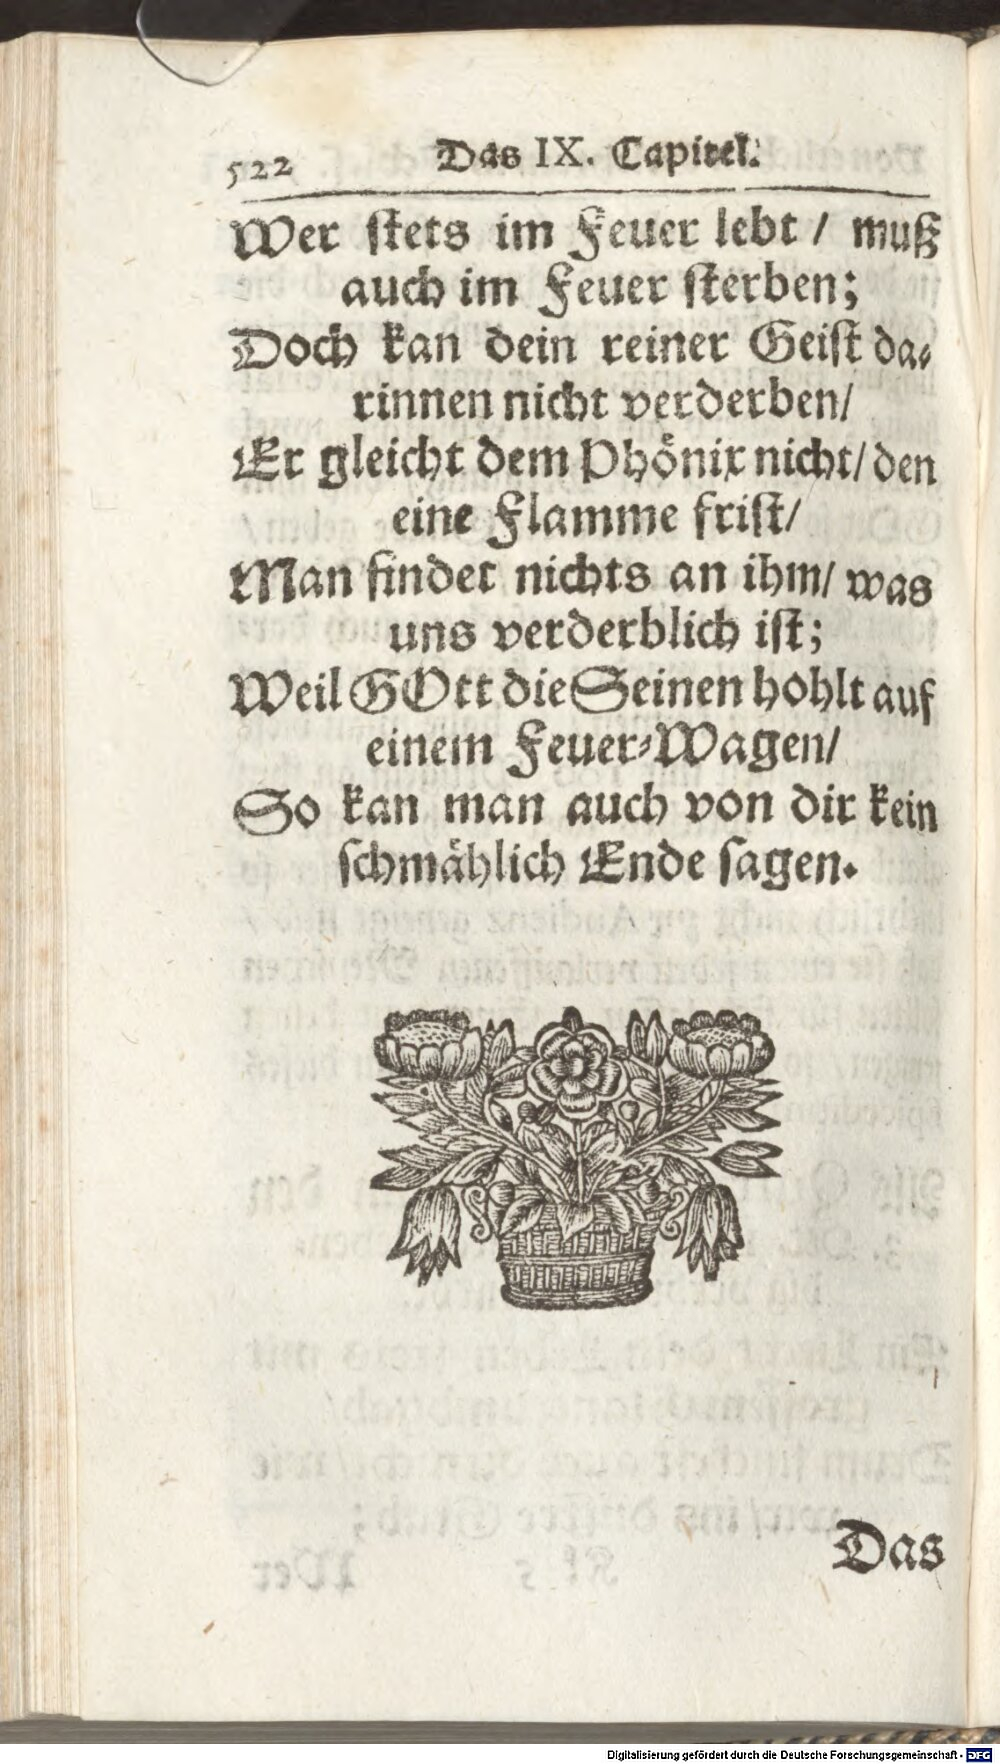 522 Das IX. Capitel.
Wer stets im Feuer lebt / muß
auch im Feuer sterben;
Doch kan dein reiner Geist da-
rinnen nicht verderben/
Er gleicht dem Phönix nicht/ den
eine Flamme frist/
Man findet nichts an ihm/ was
uns verderblich ist;
Weil GOtt die Seinen hohlt auf
einem Feuer-Wagen/
So kan man auch von dir kein
schmählich Ende sagen.
Das
Digitalisierung gefördert durch die Deutsche Forschungsgemeinschaft - DFG